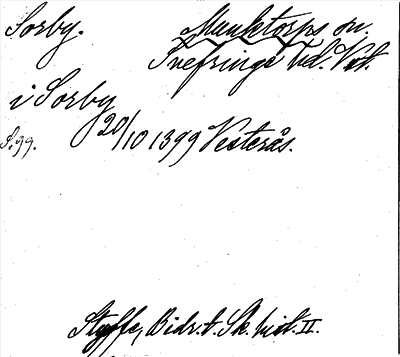 Sorby. Munktorps sn.
Snefringe hd. Vstm.
i Sorby
S. 99. 20/10 1399 Vesterås.
Styffe, Bidr. t. Sk. hist. II.